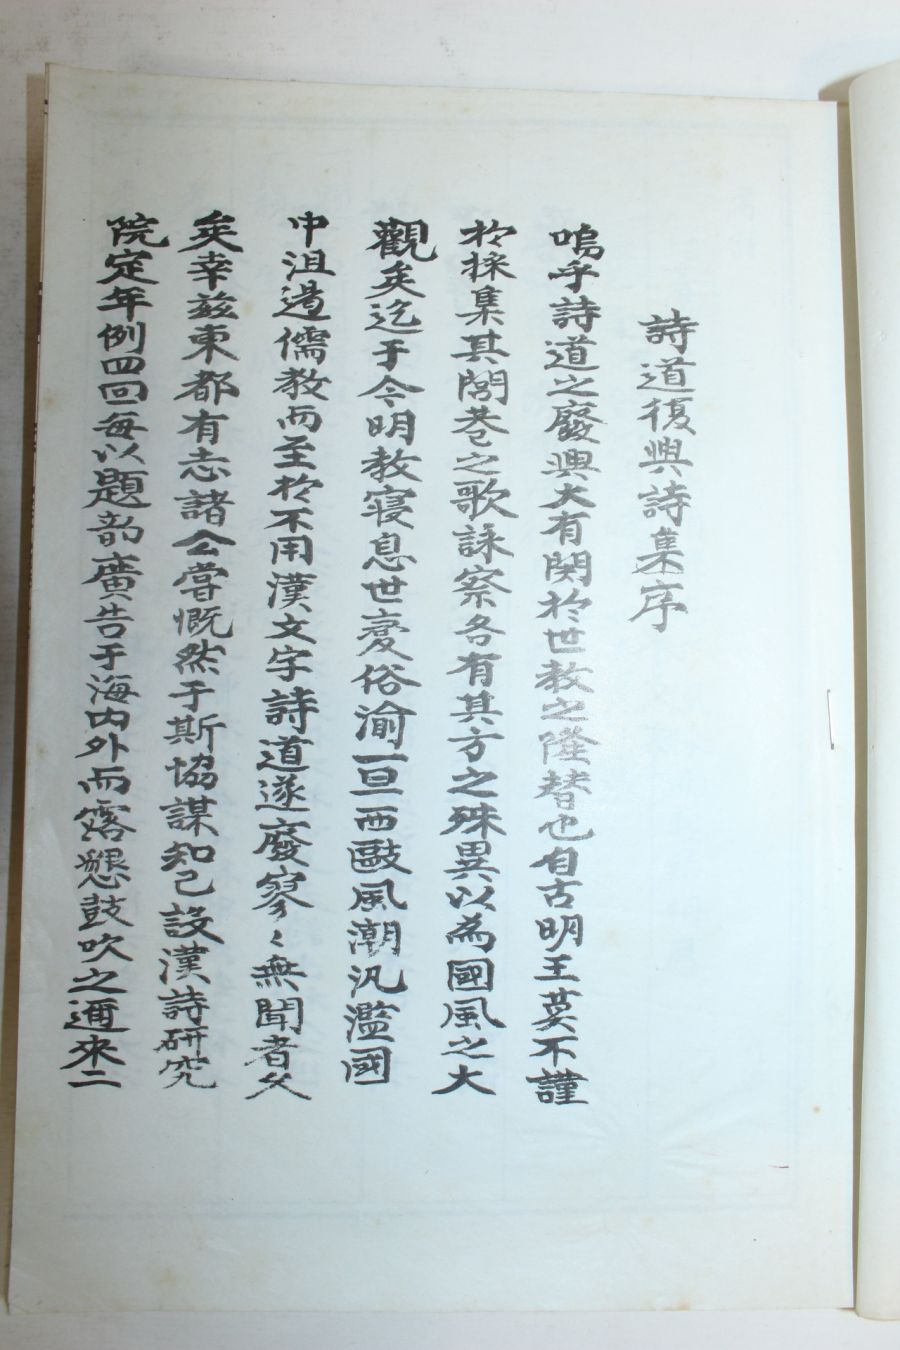 詩道復興詩集序
嗚乎詩道之廢興大有関於世教之隆替也自古明王莫不謹
於採集其閭巷之歌詠察各有其方之殊異以為國風之大
觀矣迄于今明教寝息世衰俗渝一旦西歐風潮汎濫國
中沮遏儒教而至於不用漢文字詩道遂廢寥〻無聞者久
矣幸玆東都有志諸公嘗慨然于斯協謀知己設漢詩研究
院定年例四回每以題韵廣告于海內外而露懇鼓吹之邇来二